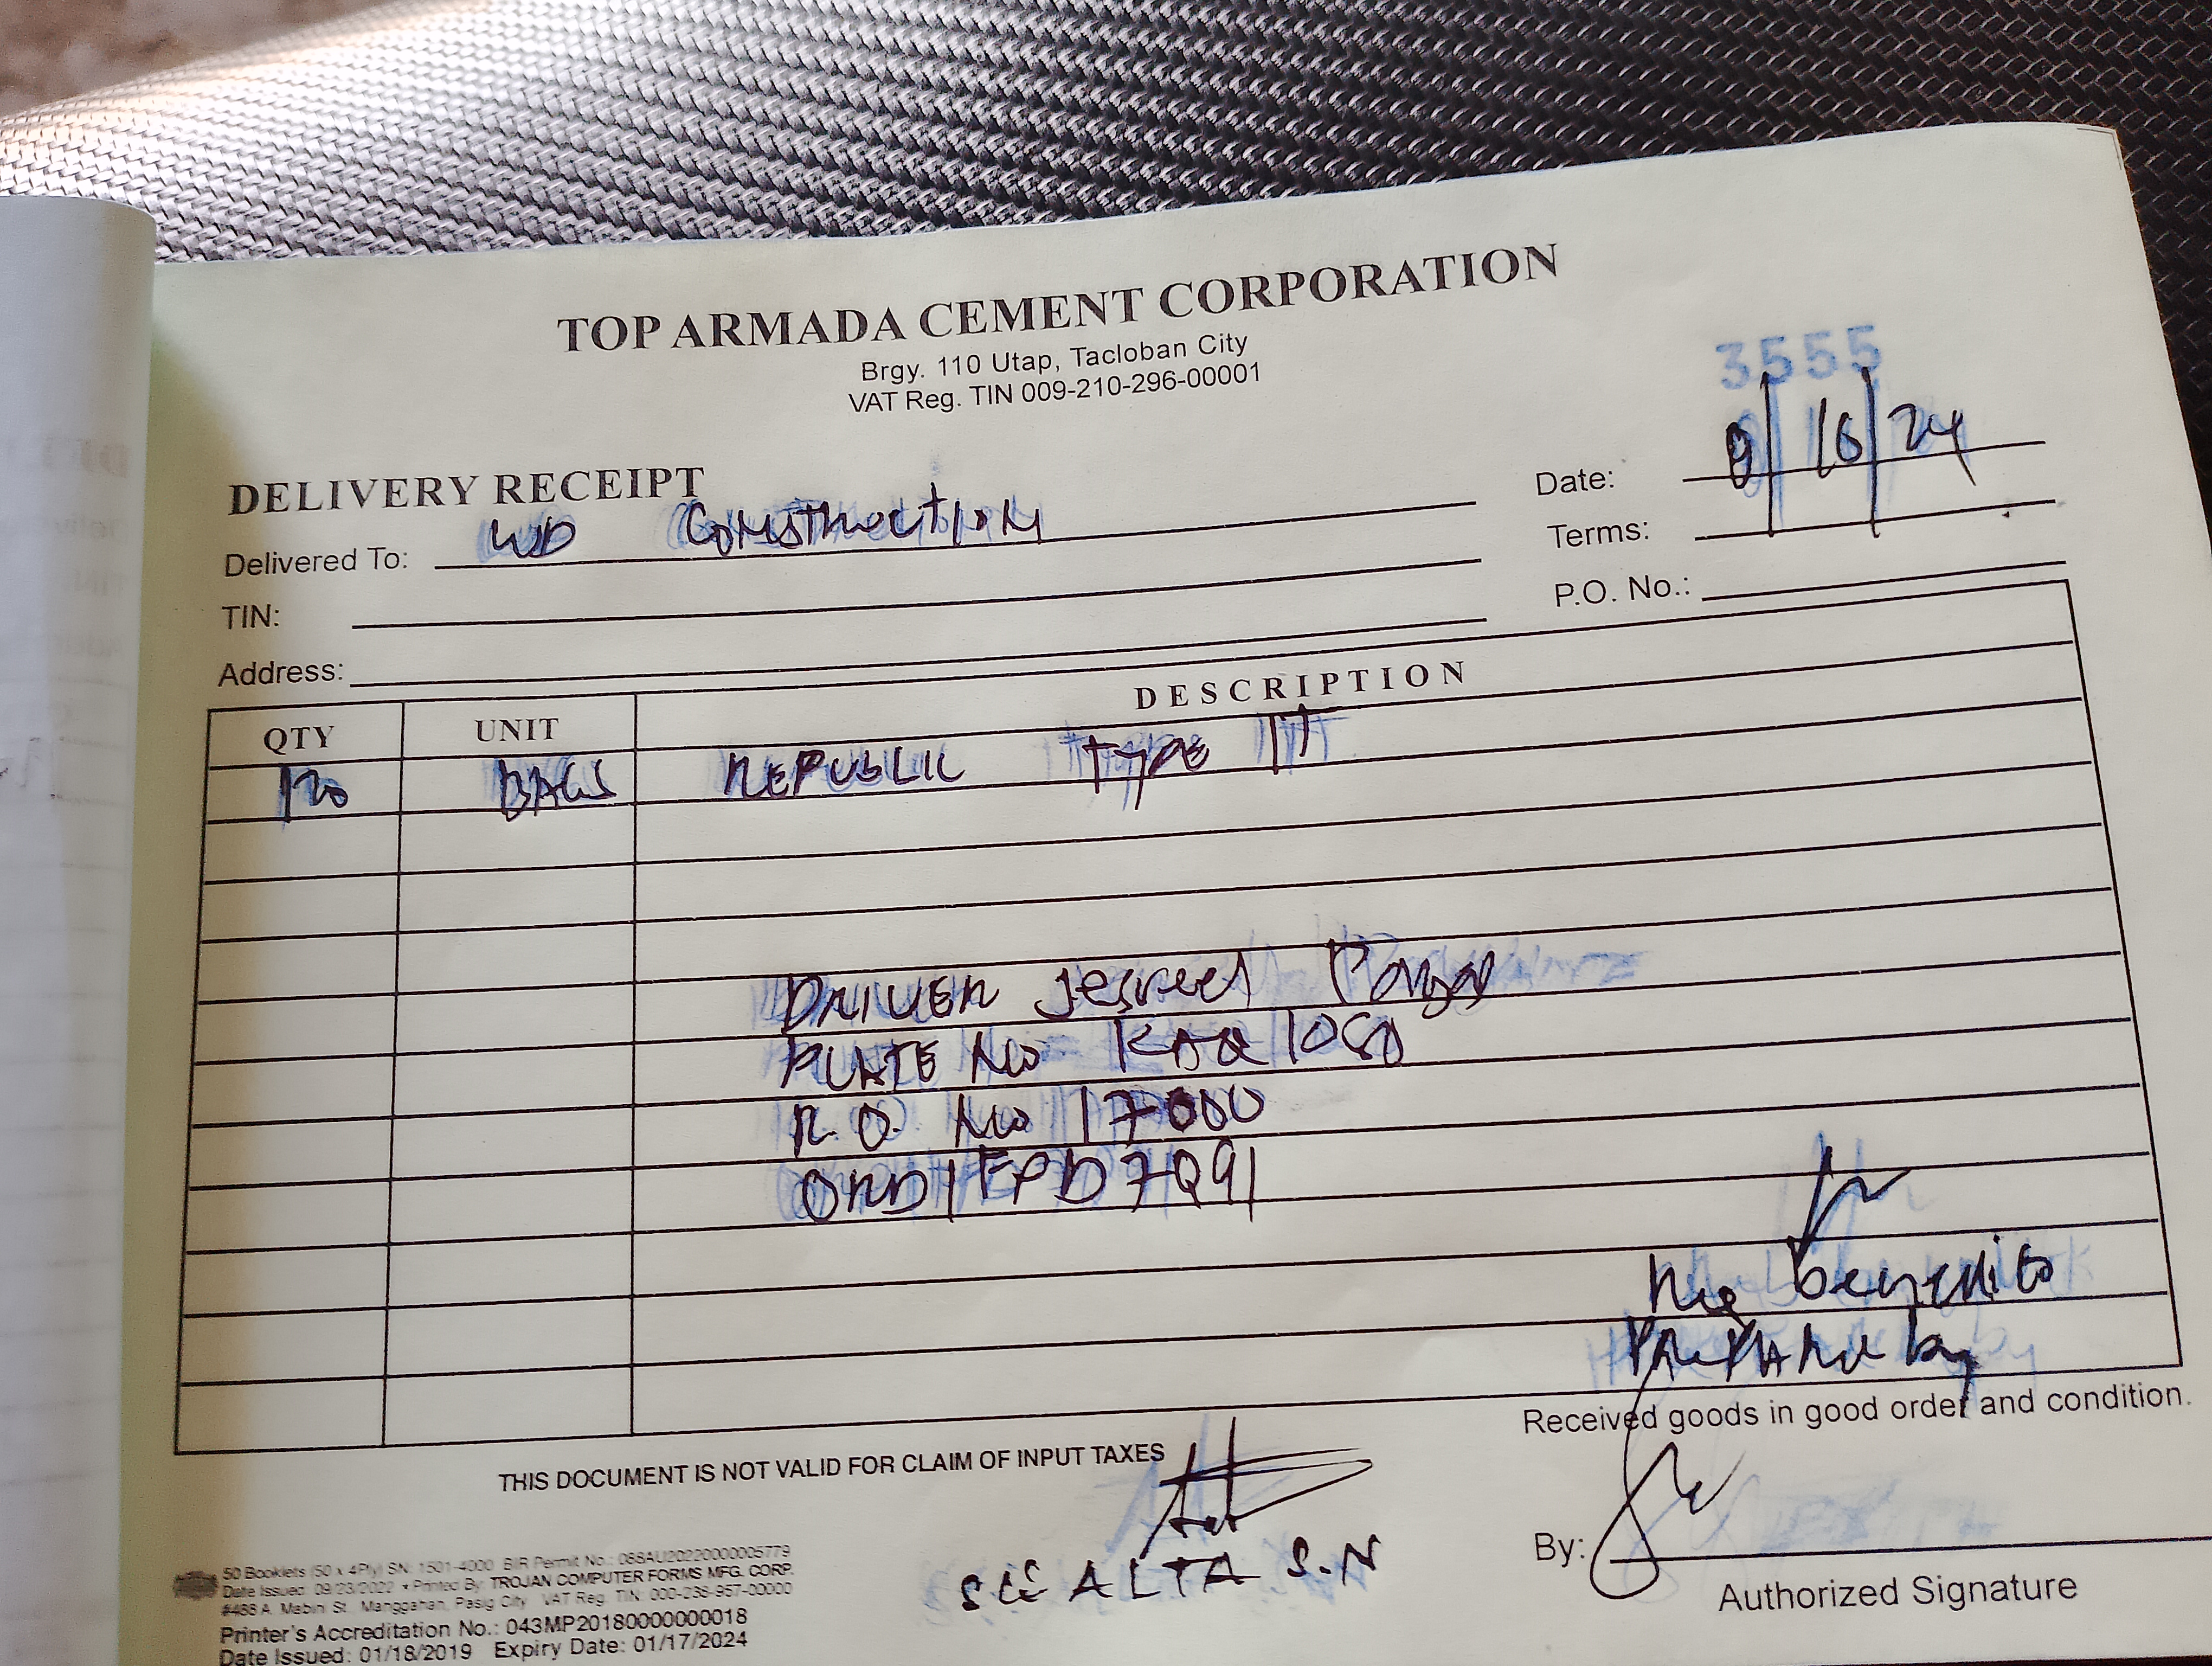 TOP ARMADA CEMENT CORPORATION
Brgy. 110 Utap, Tacloban City
VAT Reg. TIN 009-210-296-00001
3555
DELIVERY RECEIPT
Date: 9 | 16 | 24
Delivered To: WD Construction
Terms:
TIN:
P.O. No.:
Address:
QTY UNIT DESCRIPTION
120 BAGS REPUBLIC Type 1T
DRIVER Jesreel
PLATE No KAQ 1080
R.O. No 17000
ORD1FPD7Q91
benedito
PREPARED by
Received goods in good order and condition.
THIS DOCUMENT IS NOT VALID FOR CLAIM OF INPUT TAXES
SGE ALTA S.N
By:
Authorized Signature
50 Booklets (50 x 4Ply) SN: 1501-4000 BIR Permit No.: 088AU20220000005779
Date Issued: 09/23/2022 • Printed By: TROJAN COMPUTER FORMS MFG. CORP.
#488 A. Mabini St., Manggahan, Pasig City VAT Reg. TIN: 000-238-957-00000
Printer's Accreditation No.: 043MP20180000000018
Date Issued: 01/18/2019 Expiry Date: 01/17/2024